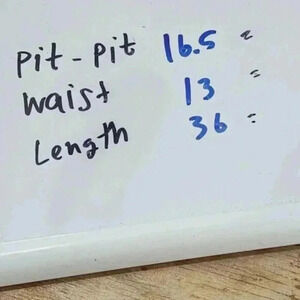 pit - pit 16.5 "
waist 13 "
Length 36 "